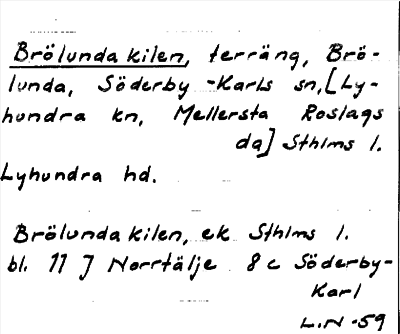 Brölunda kilen, terräng, Brö-
lunda, Söderby-Karls sn, [Ly-
hundra kn, Mellersta Roslags
da] Sthlms l.
Lyhundra hd.
Brölunda kilen, ek Sthlms l.
bl. 11 J Norrtälje 8 c Söderby-
Karl
L.N -59